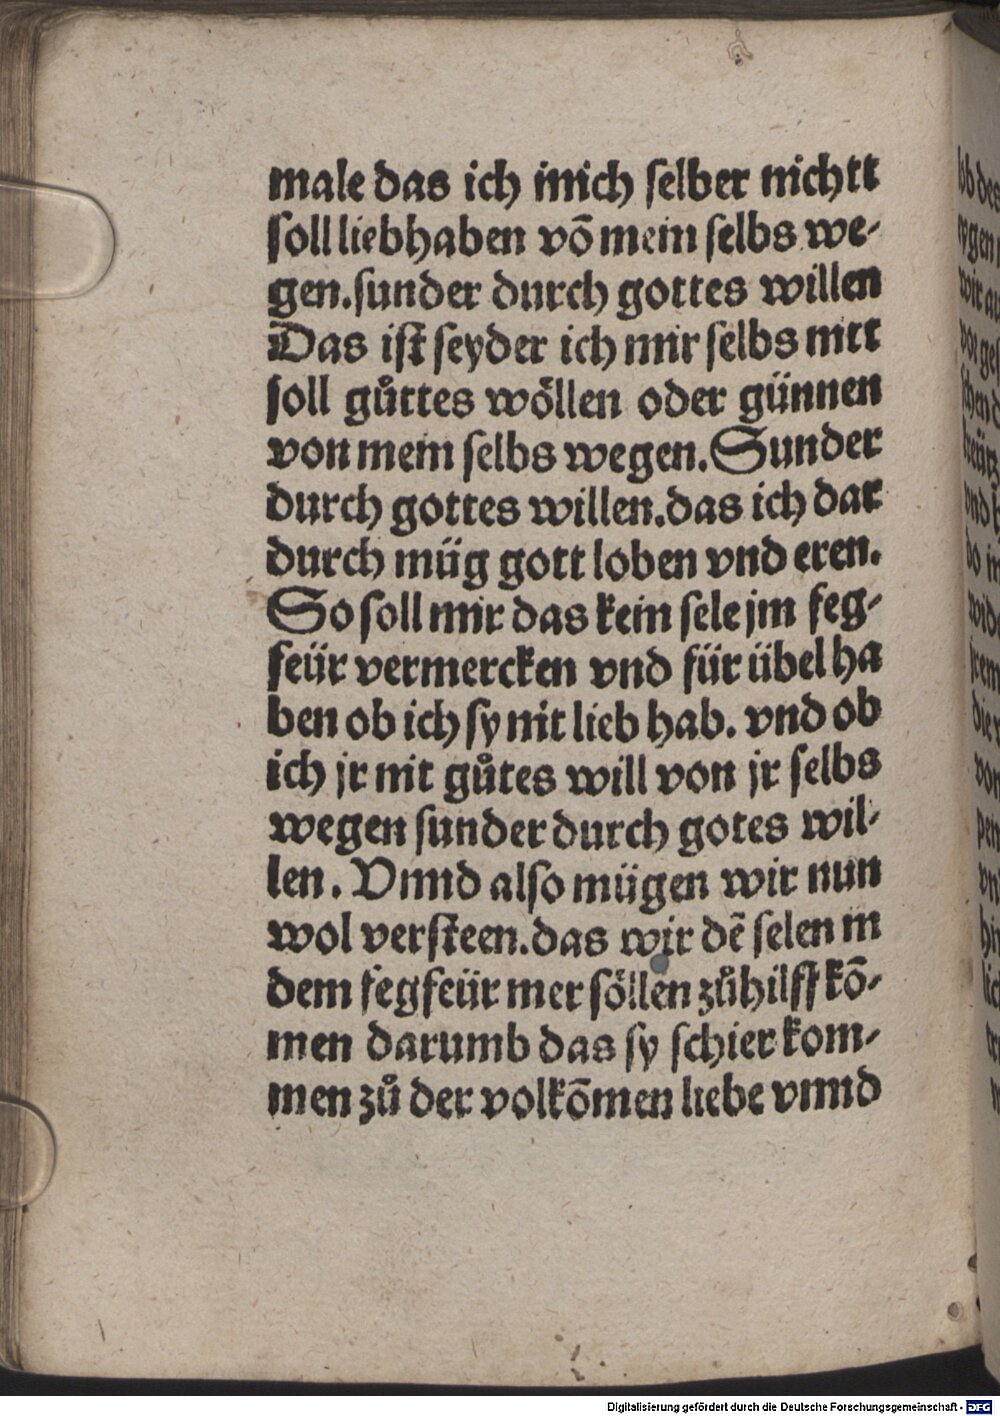 male das ich mich selber nichtt
soll liebhaben võ mein selbs we-
gen.sunder durch gottes willen
Das ist seyder ich mir selbs nitt
soll gůttes wöllen oder günnen
von mein selbs wegen.Sunder
durch gottes willen.das ich dar
durch müg gott loben vnd eren.
So soll mir das kein sele jm feg-
feür vermercken vnd für übel ha
ben ob ich sy nit lieb hab. vnd ob
ich jr nit gůtes will von jr selbs
wegen sunder durch gotes wil-
len. Vnnd also mügen wir nun
wol versteen.das wir dẽ selen in
dem fegfeür mer söllen zůhilff kõ-
men darumb das sy schier kom-
men zů der volkõmen liebe vnnd
Digitalisierung gefördert durch die Deutsche Forschungsgemeinschaft - DFG